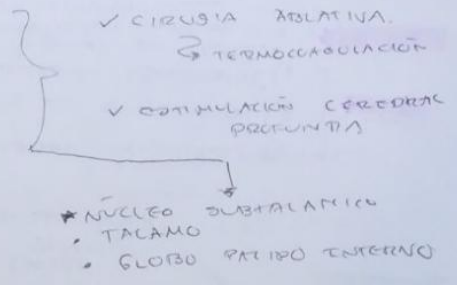 ✓ CIRUGIA ABLATIVA.
↳ TERMOCOAGULACIÓN
✓ ESTIMULACIÓN CEREBRAL
PROFUNDA
* NÚCLEO SUBTALAMICO
• TALAMO
• GLOBO PALIDO INTERNO